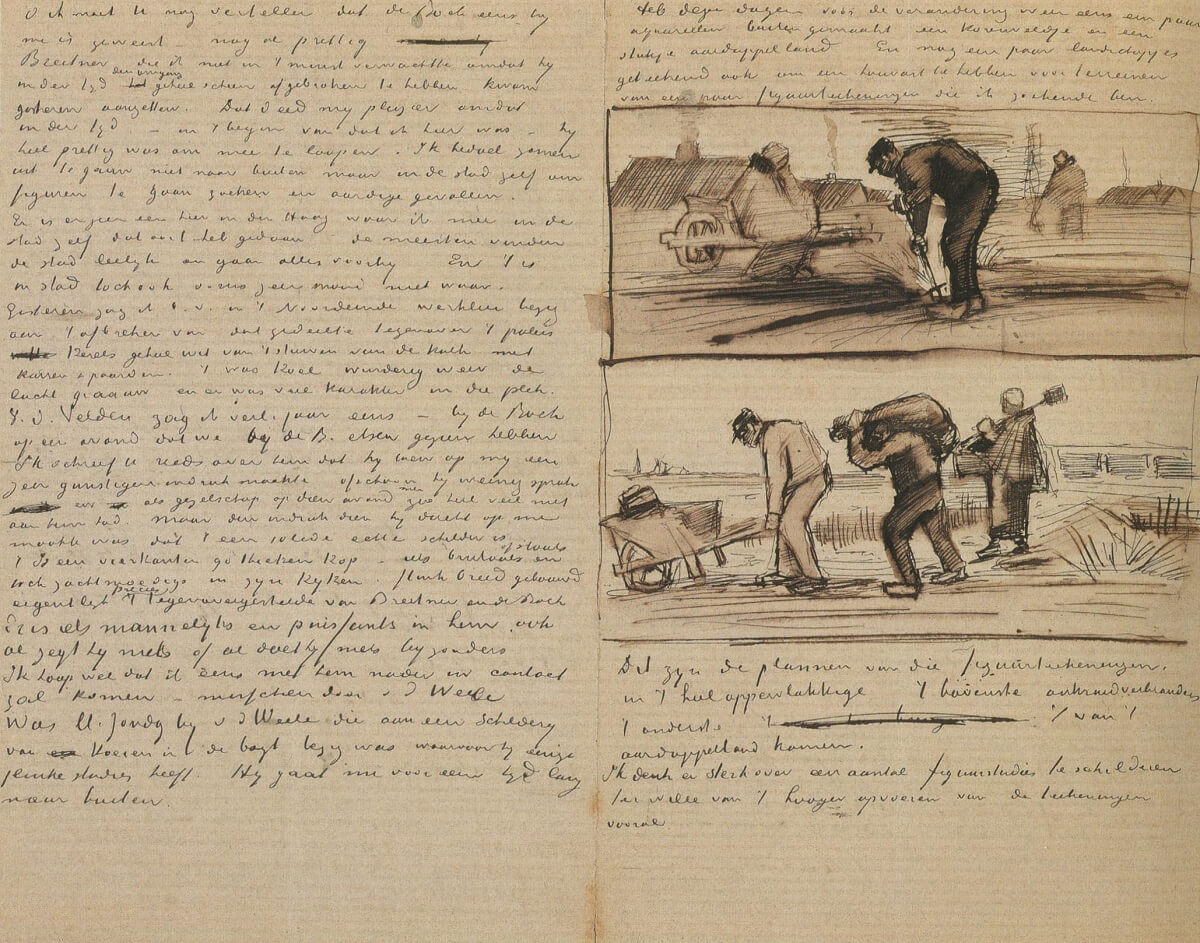 O ik moet U nog vertellen dat de Bock eens by
me is geweest – nog al prettig
Breitner die ik niet in 't minst verwachtte omdat hy
in der tyd den omgang geheel scheen afgebroken te hebben kwam
gisteren aanzetten. Dat deed my plezier omdat
in der tyd – in 't begin van dat ik hier was – hy
heel prettig was om mee te loopen. Ik bedoel zamen
uit te gaan niet naar buiten maar in de stad zelf om
figuren te gaan zoeken en aardige gevallen.
Er is er geen een hier in den Haag waar ik mee in de
stad zelf dat ooit heb gedaan de meesten vinden
de stad leelyk en gaan alles voorby En 't is
in stad toch ook wel eens zeer mooi niet waar.
Gisteren zag ik b.v. in 't Noordeinde werklui bezig
aan 't afbreken van dat gedeelte tegenover 't paleis
kerels geheel wit van 't stuiven van de kalk met
karren & paarden. 't was koel winderig weer de
lucht graauw en er was veel karakter in die plek.
V.d. Velden zag ik verl. jaar eens – by de Bock
op een avond dat we by de B. etsen gezien hebben
Ik schreef U reeds over hem dat hy toen op my een
zeer gunstigen indruk maakte ofschoon hy weinig sprak
en als gezelschap op dien avond niet zoo heel veel
aan hem had. Maar den indruk dien hy direkt op me
maakte was dat 't een solide echte schilder is.
't Is een vierkanten gothieken kop – iets brutaals ofstouts
en toch zachtmoedigs in zyn kyken. Sterk breed gebouwd
eigentlyk precies 't tegenovergestelde van Breitner en de Bock
Er is iets mannelyks en puissants in hem ook
al zegt hy niets of al doet hy niets byzonders
Ik hoop wel dat ik eens met hem nader in contact
zal komen – misschien door v d Weele
Was ll. zondag by v d Weele die aan een schildery
van koeien in de bogt bezig was waarvoor hy eenige
flinke studies heeft. Hy gaat nu voor een tyd lang
naar buiten.
Heb dezer dagen voor de verandering weer eens een paar
aquarellen buiten gemaakt een korenveldje en een
stukje aardappelland En nog een paar landschapjes
geteekend ook om een houvast te hebben voor terreinen
van een paar figuurteekeningen die ik zoekende ben.
Dit zyn de plannen van die figuurteekeningen.
in 't heel oppervlakkige 't bovenste onkruidverbranders
't onderste 't van 't
aardappelland komen.
Ik denk er sterk over een aantal figuurstudies te schilderen
ter wille van 't hooger opvoeren van de teekeningen
vooral.